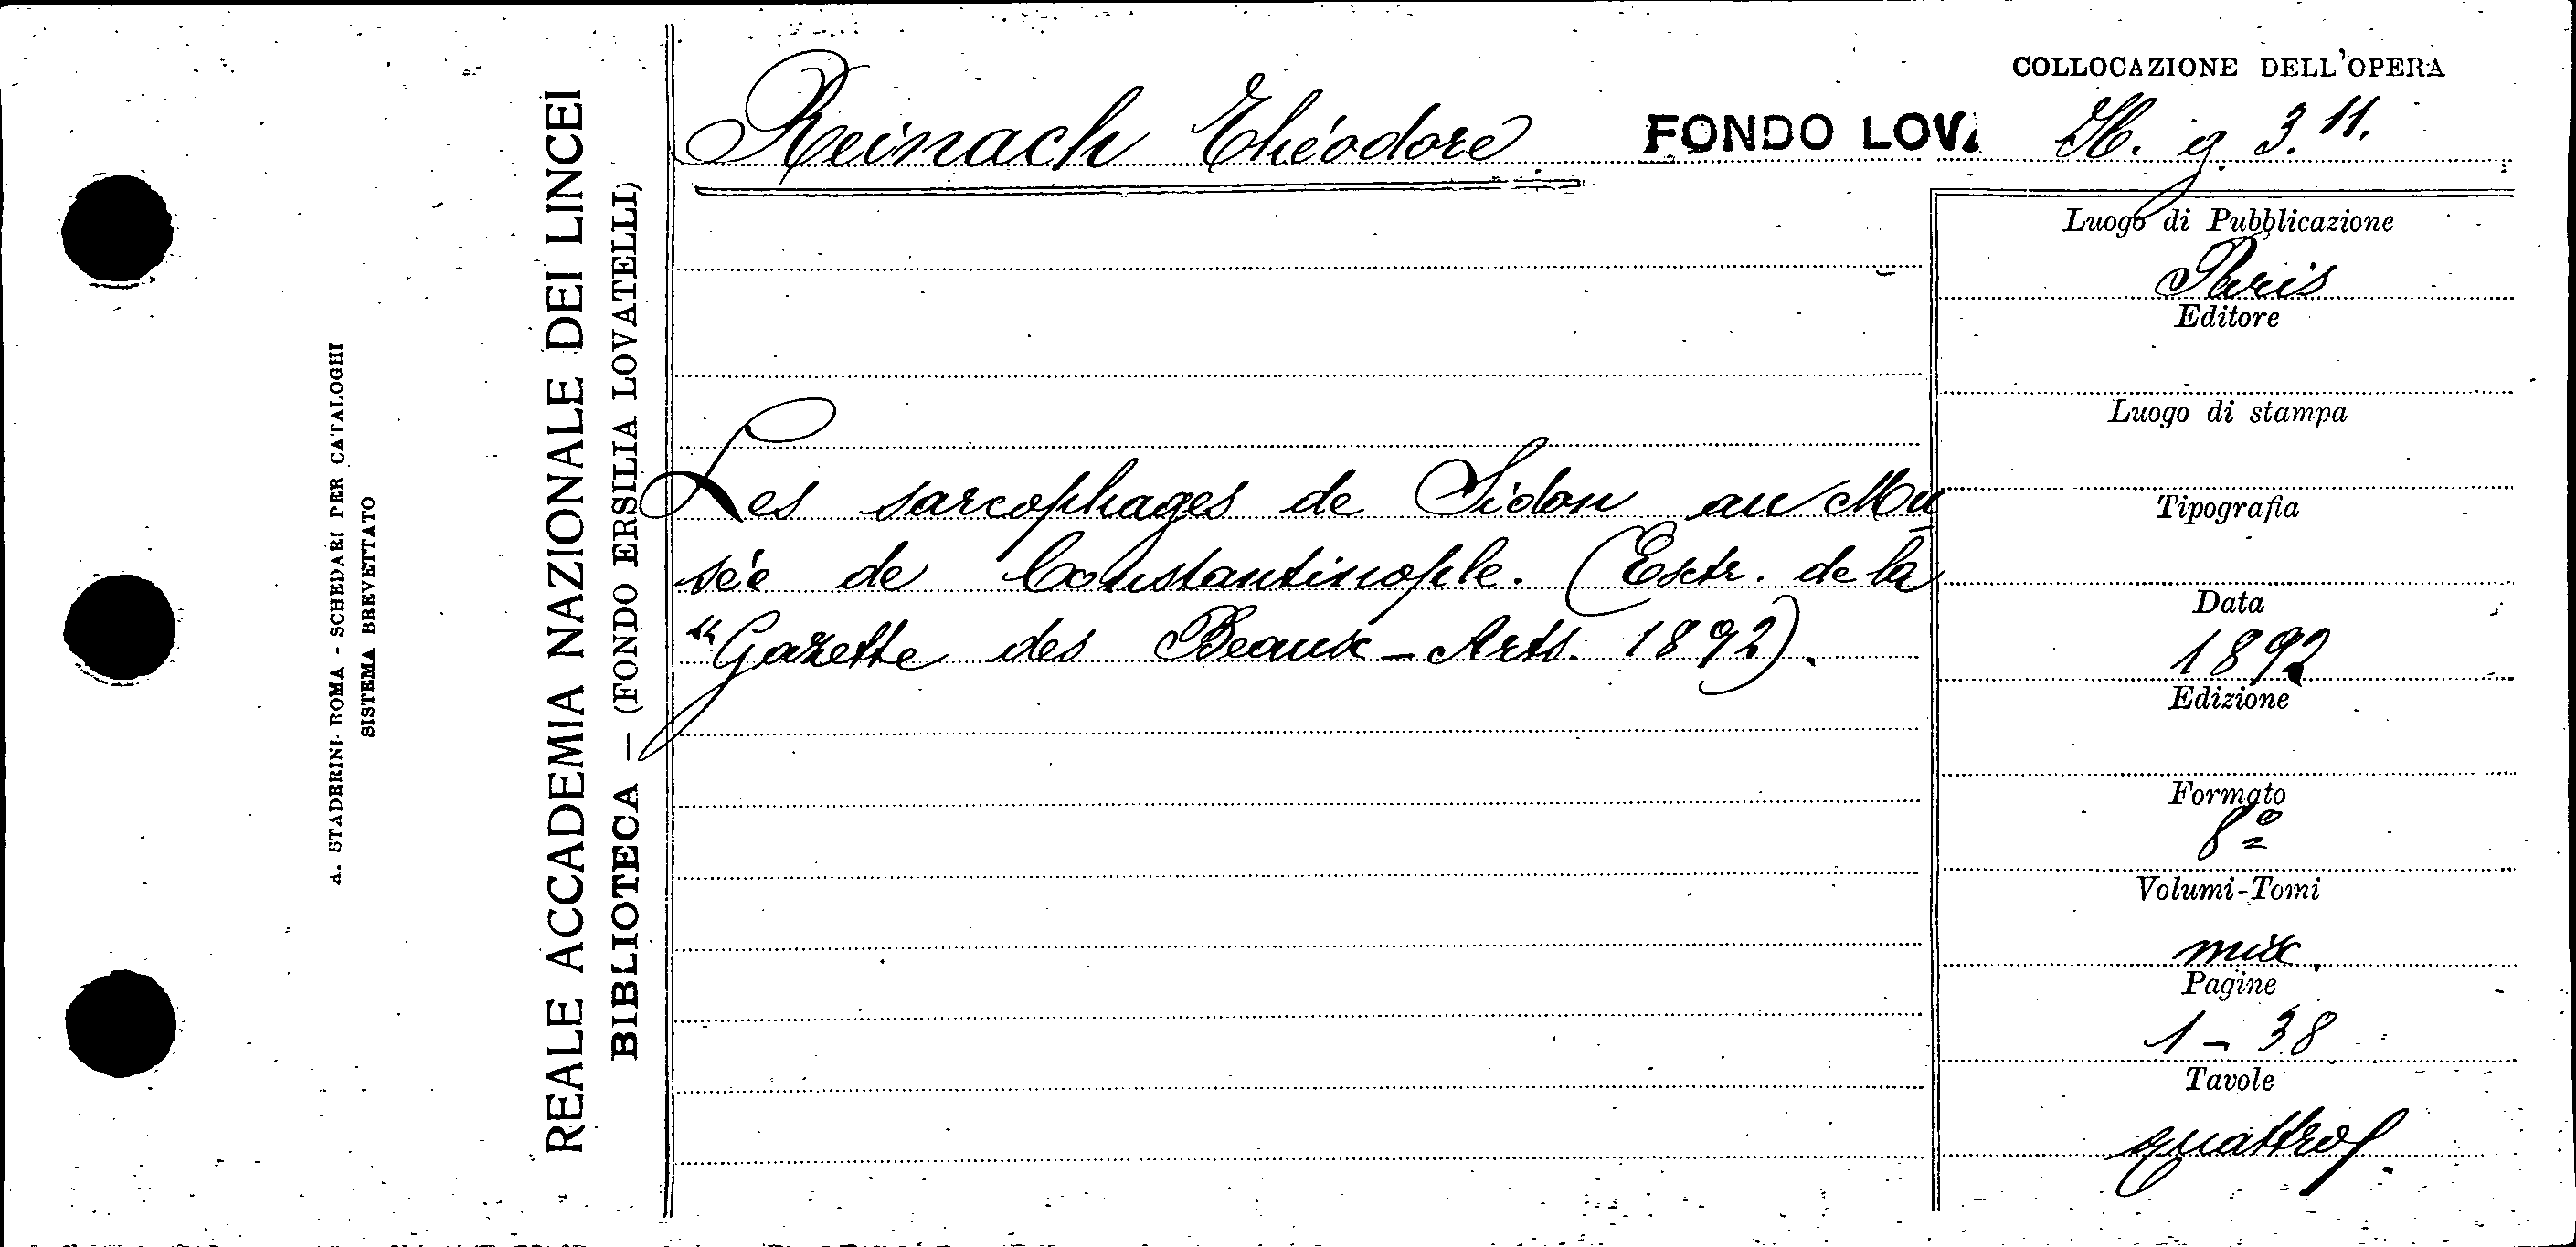 A. STADERINI - ROMA - SCHEDARI PER CATALOGHI
SISTEMA BREVETTATO
REALE ACCADEMIA NAZIONALE DEI LINCEI
BIBLIOTECA — (FONDO ERSILIA LOVATELLI)
Reinach Théodore
FONDO LOVA
COLLOCAZIONE DELL'OPERA
g. 3. 11.
Les sarcophages de Sidon au Mu
sée de Constantinople. (Estr. de la
"Gazette des Beaux-Arts. 1892).
Luogo di Pubblicazione
Paris
Editore
Luogo di stampa
Tipografia
Data
1892
Edizione
Formato
8º
Volumi-Tomi
Pagine
1 - 38
Tavole
quattro